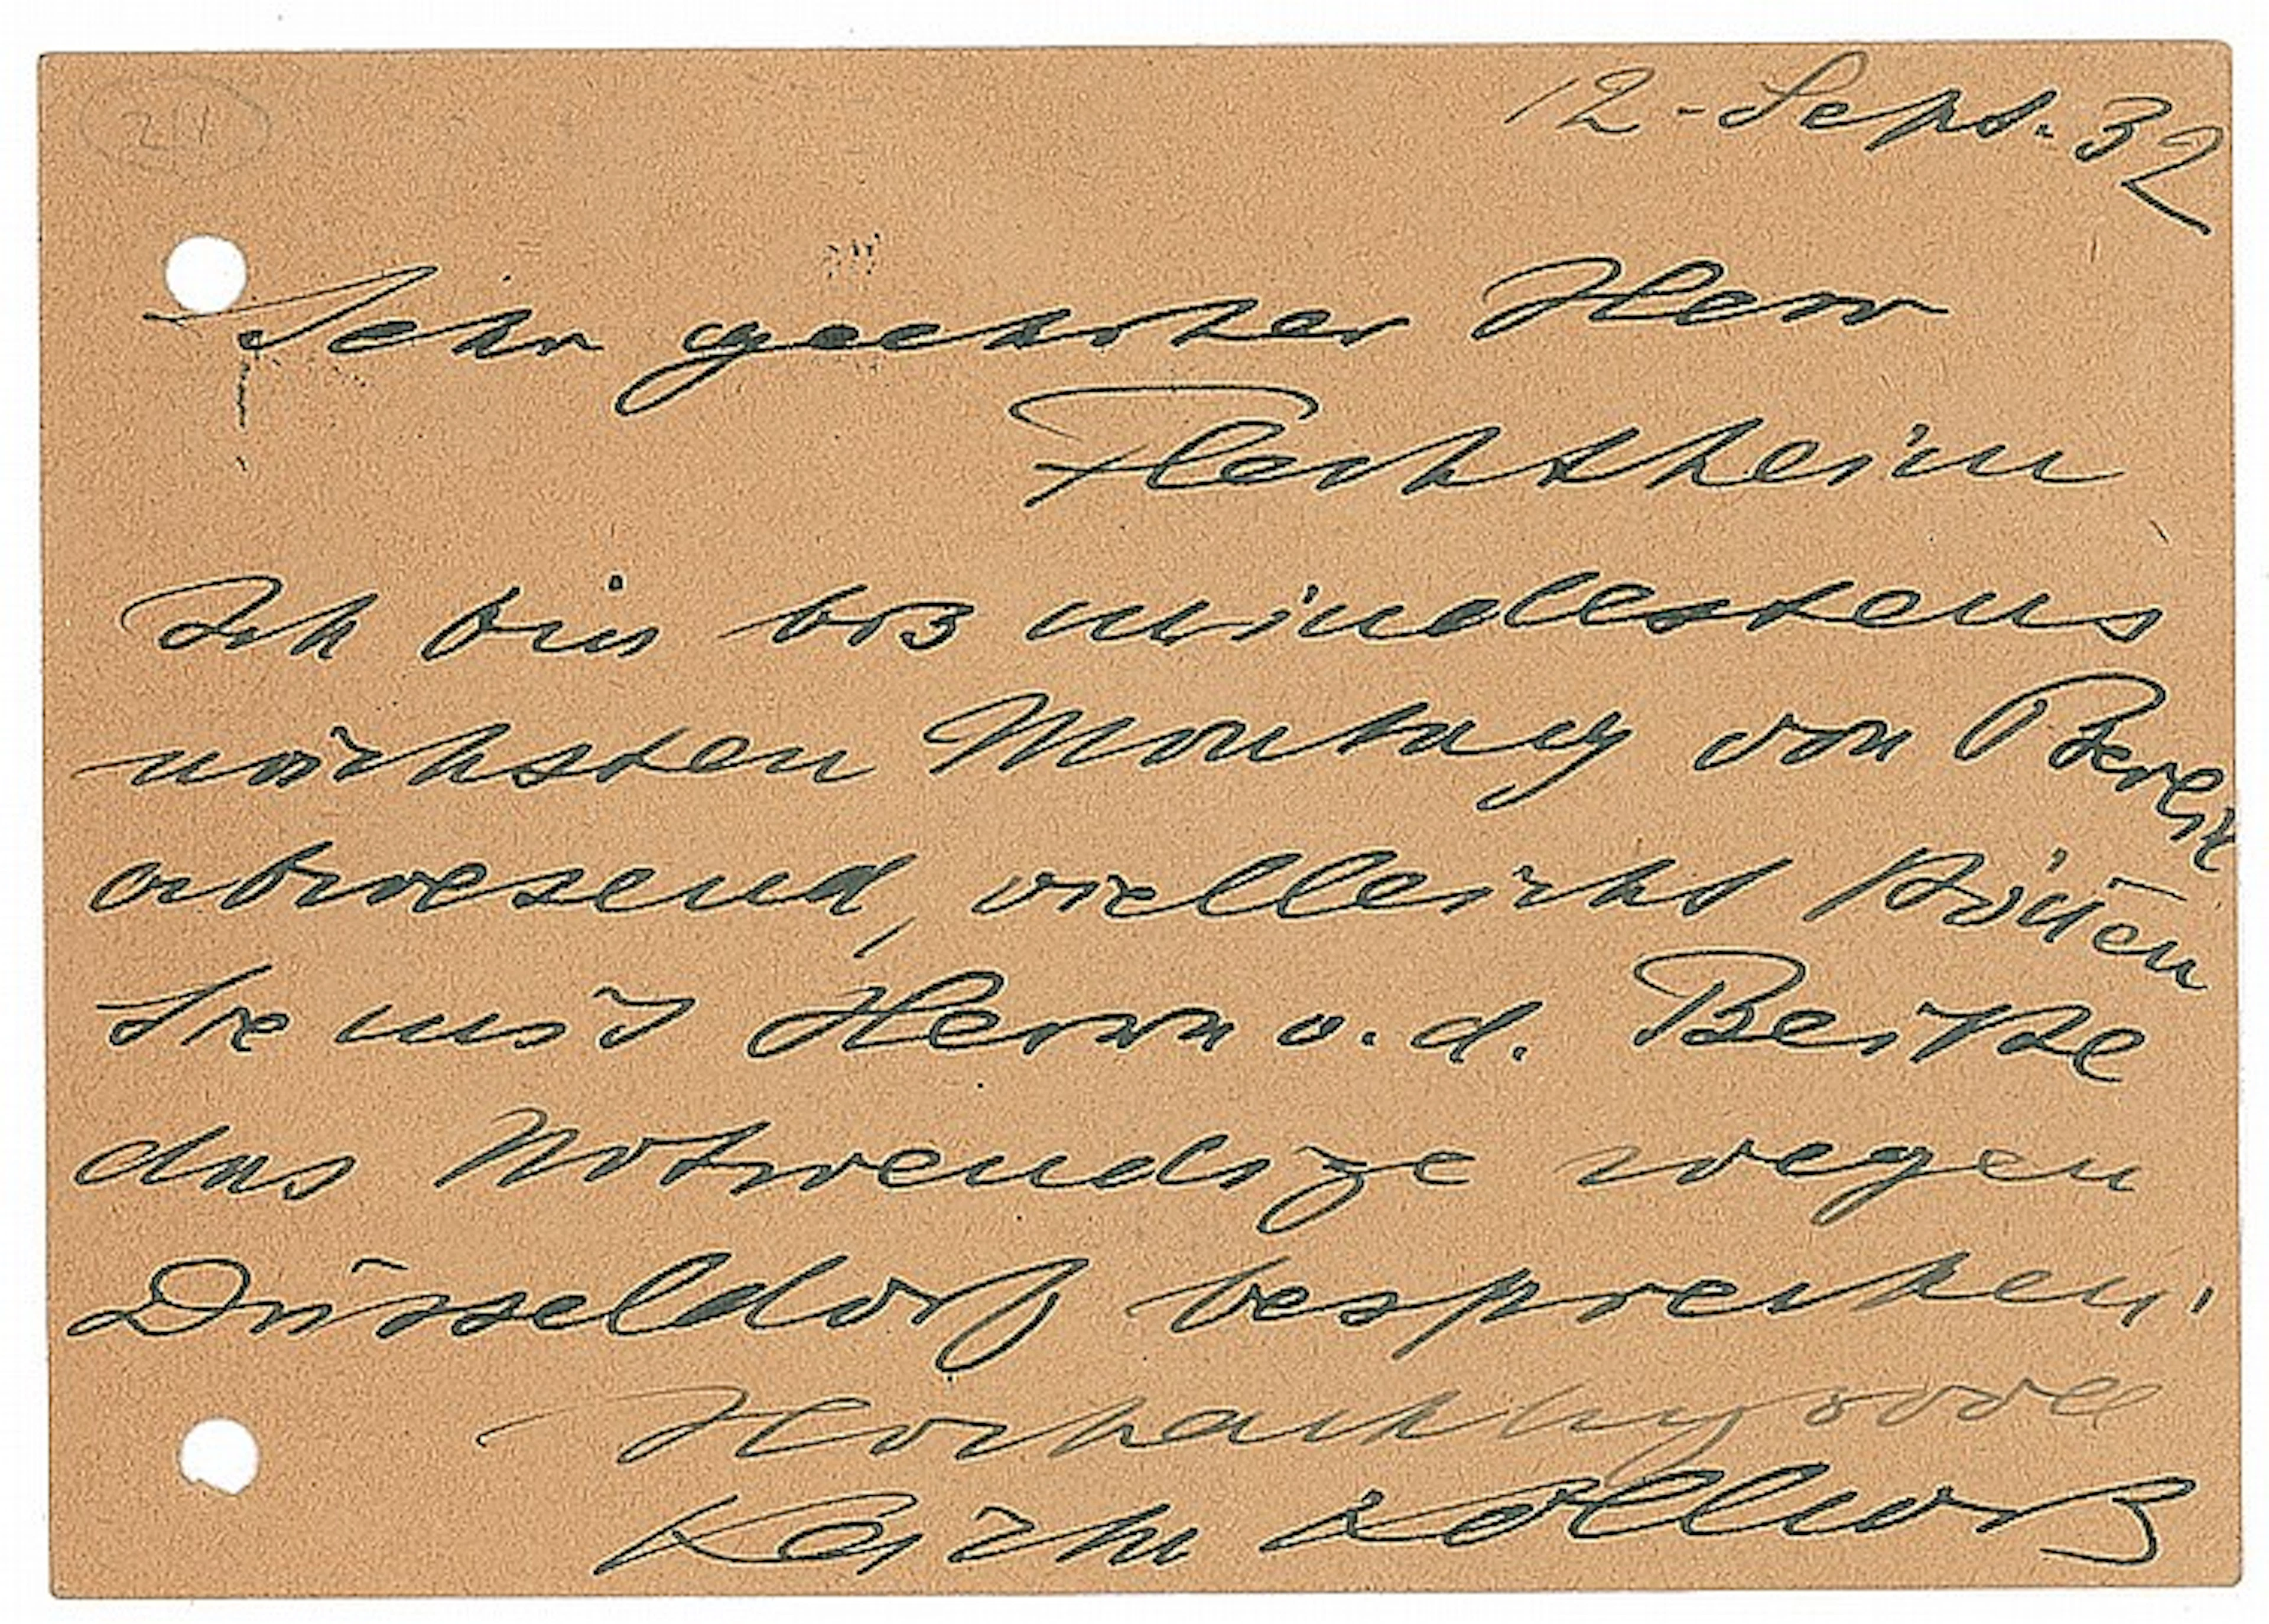 12. Sept. 32
Sehr geehrter Herr
Flechtheim
Ich bin bis mindestens
nächsten Montag von Berlin
abwesend, vielleicht können
Sie mit Herrn v. d. Becke
das Notwendige wegen
Düsseldorf besprechen.
Hochachtungsvoll
Käthe Kollwitz